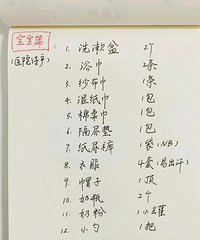 宝宝篇:
(医院待产)
1. 洗漱盆 2个
2. 浴巾 2条
3. 纱布巾 1条
4. 湿纸巾 1包
5. 棉柔巾 1包
6. 隔尿垫 1包
7. 纸尿裤 1袋(NB)
8. 衣服 4套(易出汗)
9. 帽子 1顶
10. 奶瓶 2个
11. 奶粉 1小罐
12. 小勺 1把